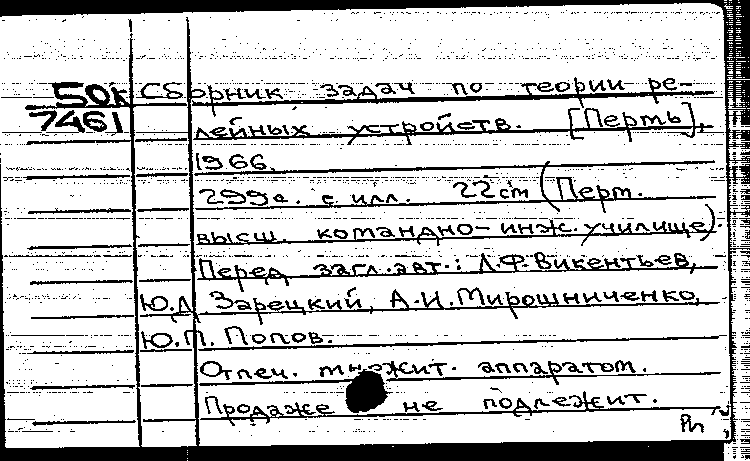 50к Сборник задач по теории ре-
7461 лейных устройств. [Пермь],
1966.
299с. с илл. 22см (Перм.
высш. командно-инж. училище).
Перед загл. авт.: Л.Ф. Викентьев,
Ю.Д. Зарецкий, А.И. Мирошниченко,
Ю.П. Попов.
Отпеч. множит. аппаратом.
Продаже не подлежит.